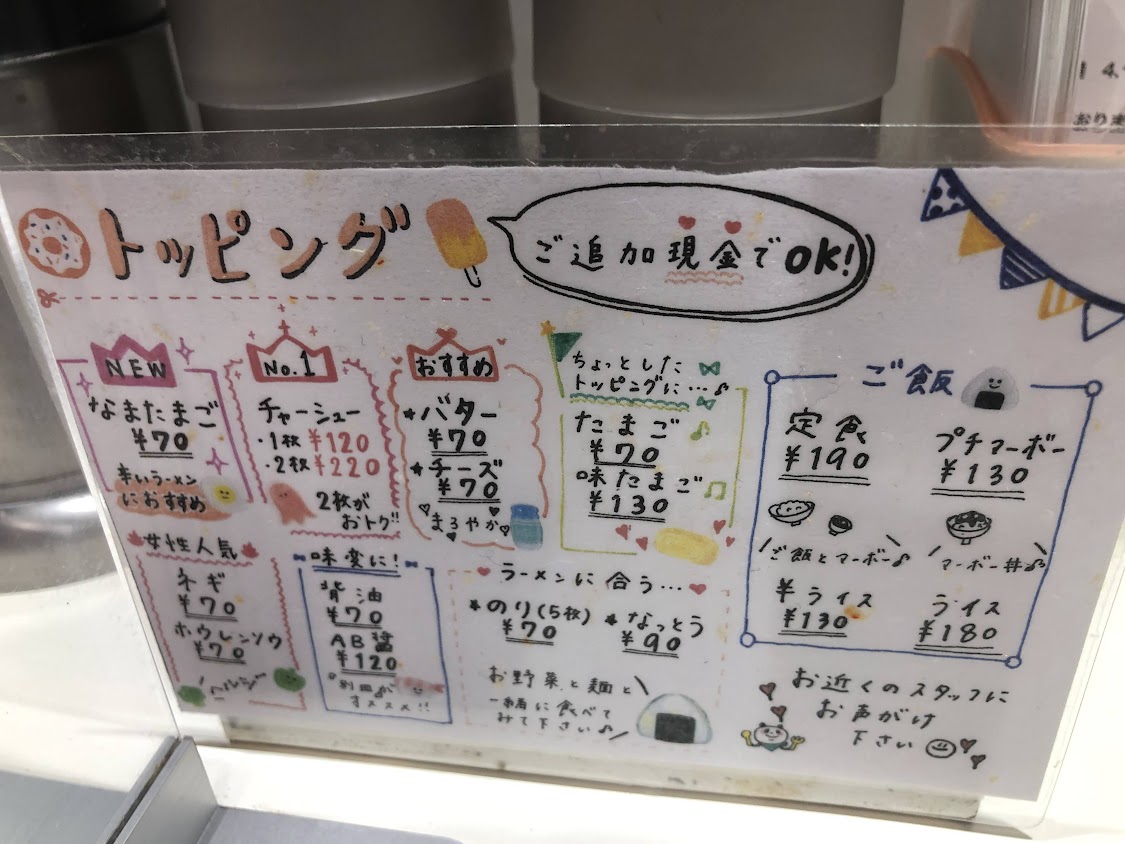 トッピング
ご追加現金でOK!
NEW
なまたまご
¥70
辛いラーメン
におすすめ
No.1
チャーシュー
・1枚 ¥120
・2枚 ¥220
2枚が
おトク!!
おすすめ
★バター
¥70
★チーズ
¥70
まろやか
ちょっとした
トッピングに…♪
たまご
¥70
味たまご
¥130
ご飯
定食
¥190
ご飯とマーボー♪
プチマーボー
¥130
マーボー丼♪
半ライス
¥130
ライス
¥180
女性人気
ネギ
¥70
ホウレンソウ
¥70
ヘルシー
味変に!
背油
¥70
AB醤
¥120
別皿が
オススメ!!
ラーメンに合う…
★のり(5枚)
¥70
★なっとう
¥90
お野菜と麺と
一緒に食べて
みて下さい♪
お近くのスタッフに
お声がけ
下さい
おりま